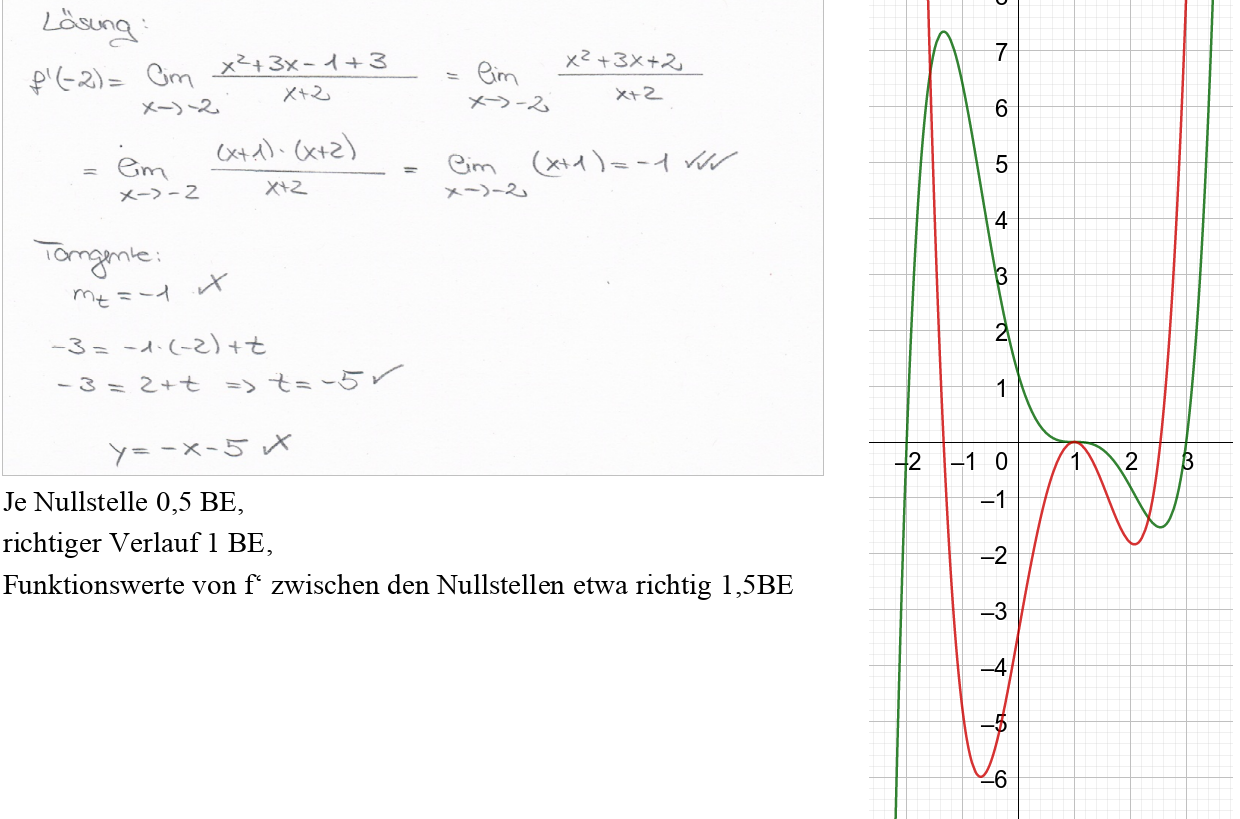 Lösung:
f'(-2) = lim x→-2 (x²+3x-1+3)/(x+2) = lim x→-2 (x²+3x+2)/(x+2)
= lim x→-2 ((x+1)·(x+2))/(x+2) = lim x→-2 (x+1) = -1 ✓✓✓
Tangente:
m_t = -1
-3 = -1·(-2)+t
-3 = 2+t => t = -5 ✓
y = -x-5
Je Nullstelle 0,5 BE,
richtiger Verlauf 1 BE,
Funktionswerte von f‘ zwischen den Nullstellen etwa richtig 1,5BE
7
6
5
4
3
2
1
–2 –1 0 1 2 3
–1
–2
–3
–4
–5
–6